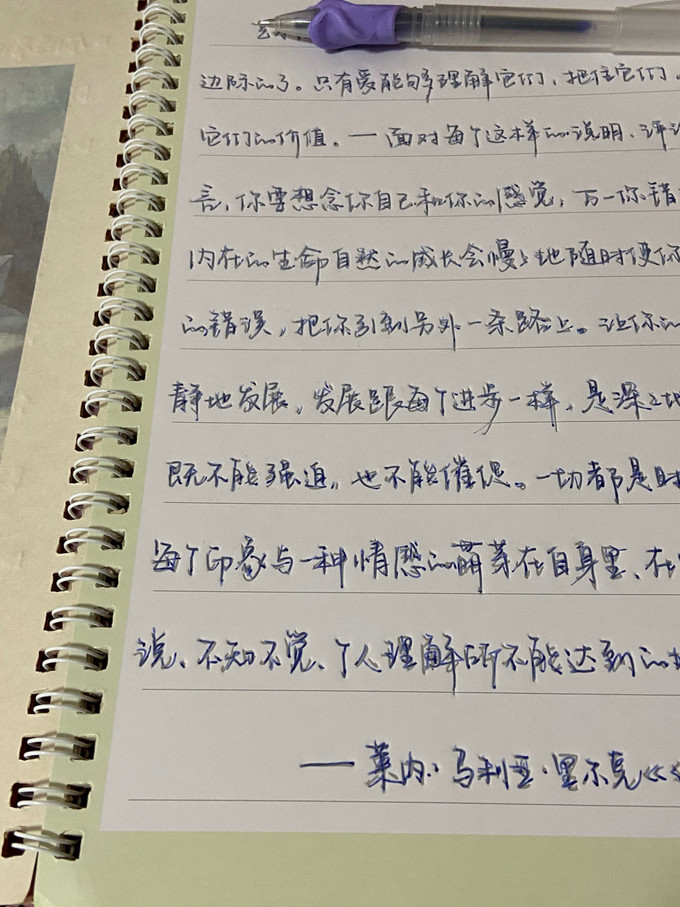 边际的了。只有爱能够理解它们，把住它们，
它们的价值。—面对每个这样的说明、评论
言，你要想念你自己和你的感觉；万一你错
内在的生命自然的成长会慢慢地随时使你
的错误，把你引到另外一条路上。让你的
静地发展，发展跟每个进步一样，是深深地
既不能强迫，也不能催促。一切都是时
每个印象与一种情感的萌芽在自身里、在
说、不知不觉、个人理解所不能达到的
——莱内·马利亚·里尔克《